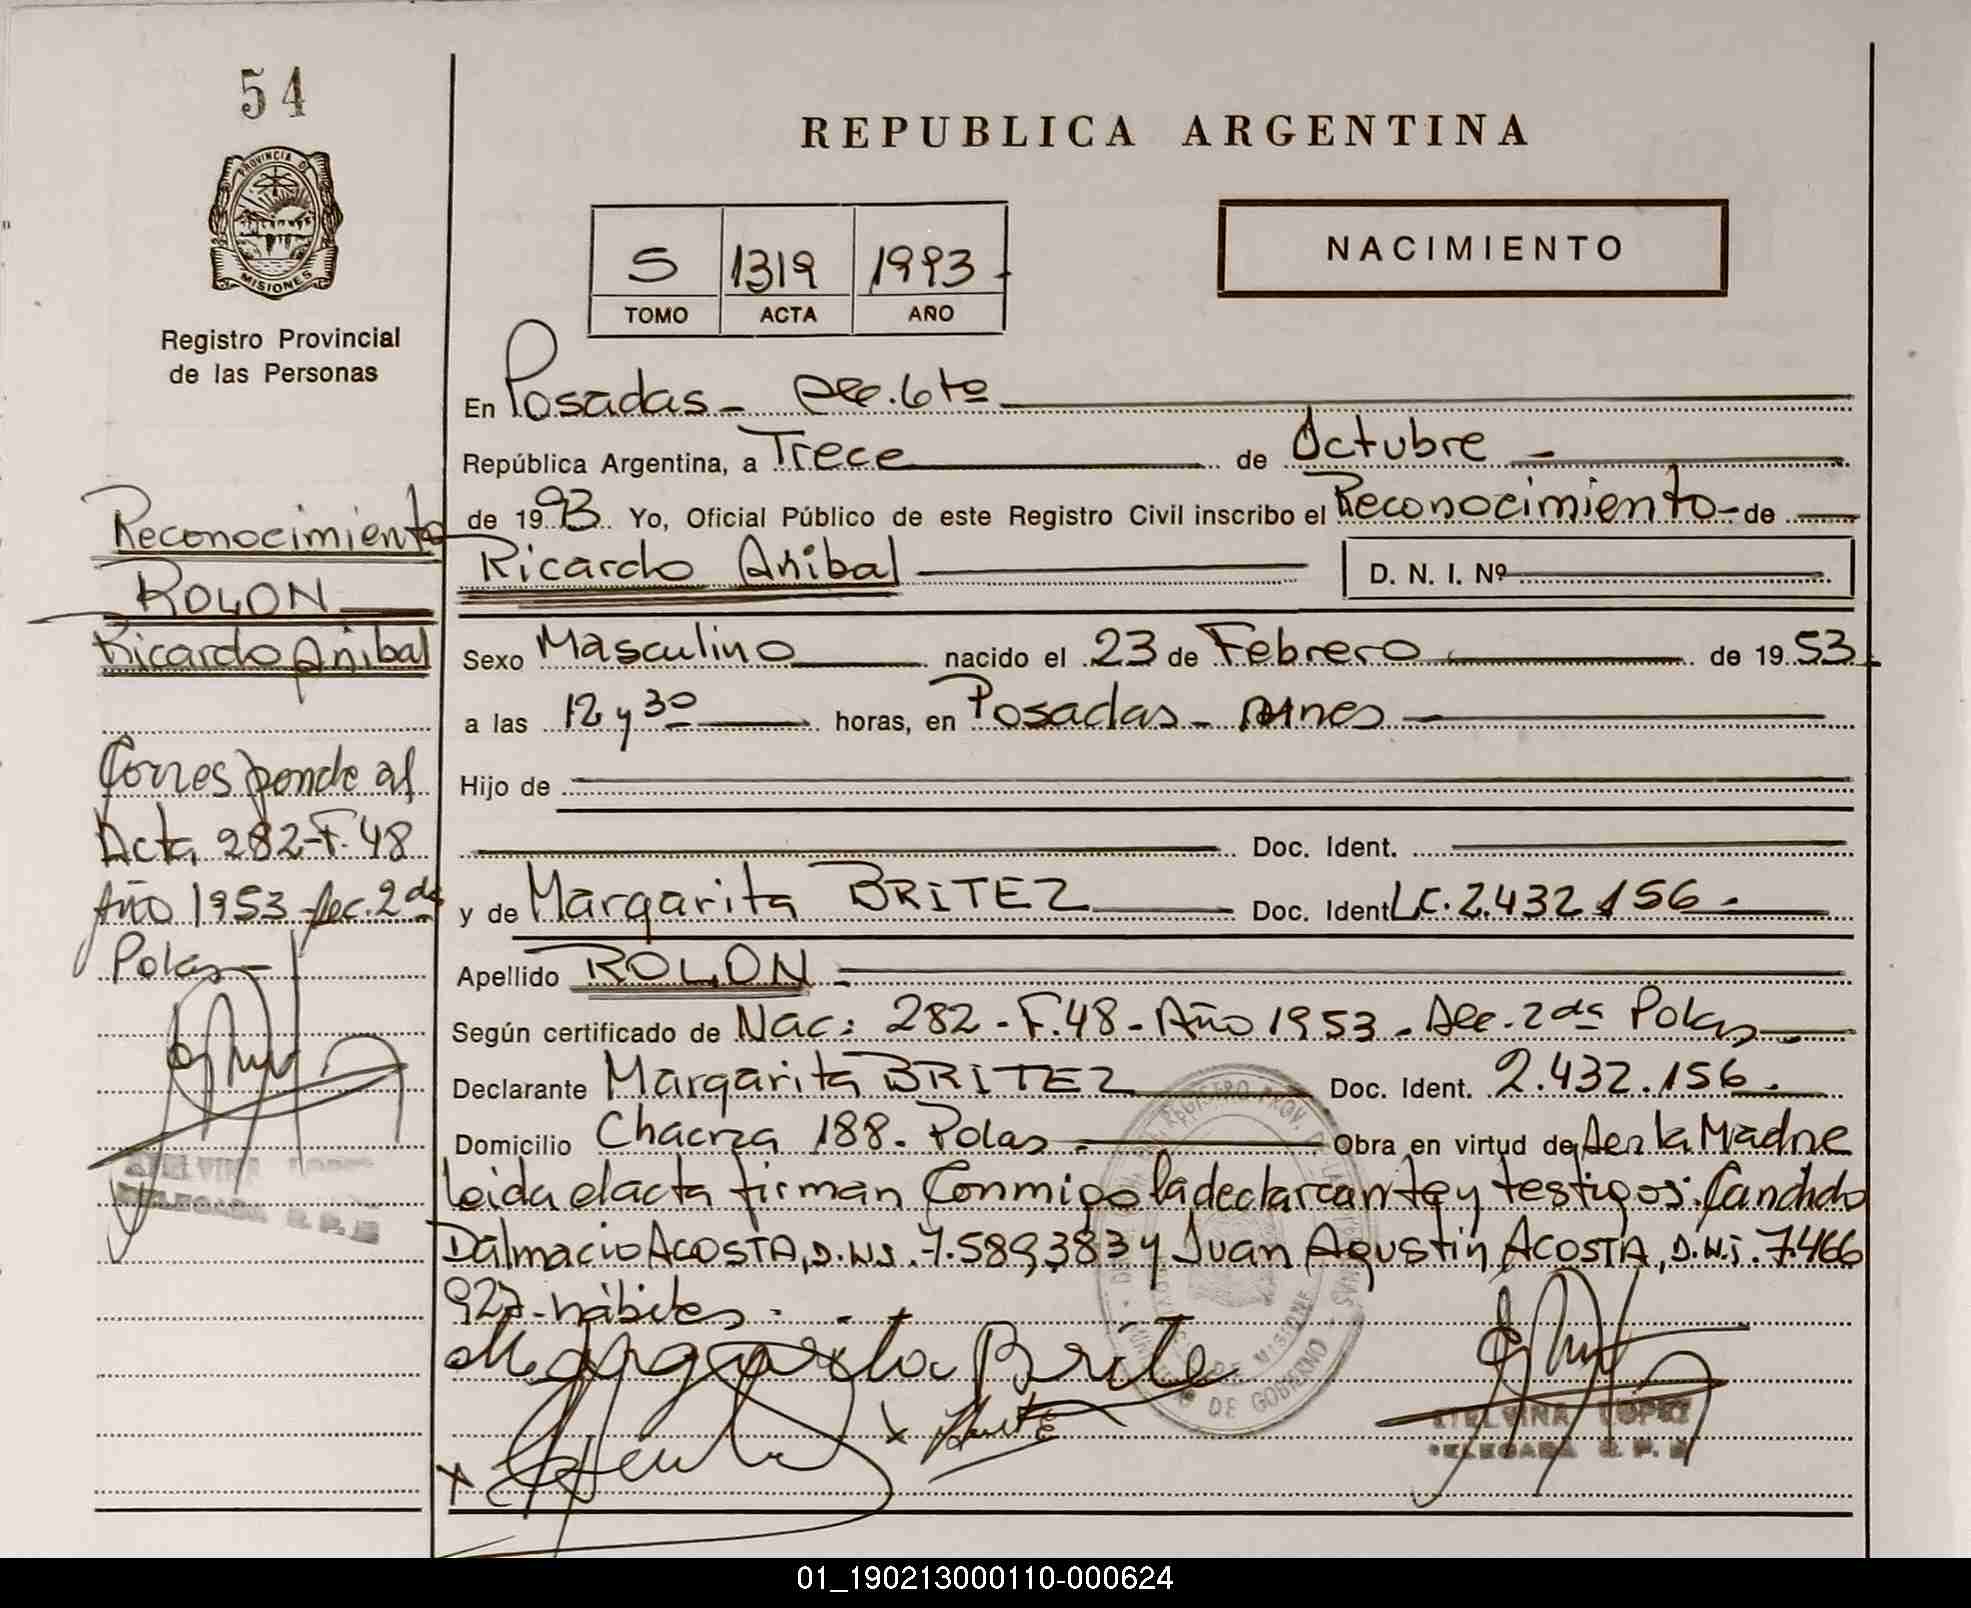 54
PROVINCIA DE
MISIONES
Registro Provincial
de las Personas
Reconocimiento
ROLON
Ricardo Anibal
Corresponde al
Acta 282-F.48
Año 1953 Sec. 2da
Pdas
REPUBLICA ARGENTINA
NACIMIENTO
5 1319 1993
TOMO ACTA AÑO
En Posadas - Sec. 6ta
República Argentina, a Trece de Octubre
de 1993 Yo, Oficial Público de este Registro Civil inscribo el Reconocimiento de
Ricardo Anibal D. N. I. Nº
Sexo Masculino nacido el 23 de Febrero de 1953
a las 12 y 30 horas, en Posadas - Mnes
Hijo de
Doc. Ident.
y de Margarita BRITEZ Doc. Ident LC. 2.432.156.
Apellido ROLON
Según certificado de Nac: 282 - F.48 - Año 1953 - Sec. 2da Pdas
Declarante Margarita BRITEZ Doc. Ident. 2.432.156.
Domicilio Chacra 188. Pdas Obra en virtud de Ser la Madre
Leida el acta firman Conmigo la declarante y testigos: Candido
Dalmacio ACOSTA, D.N.I. 7.589.383 y Juan Agustin ACOSTA, D.N.I. 7.466
927 - hábiles
Margarita Brite
ETELVINA LOPEZ
DELEGADA R. P. P.
01_190213000110-000624